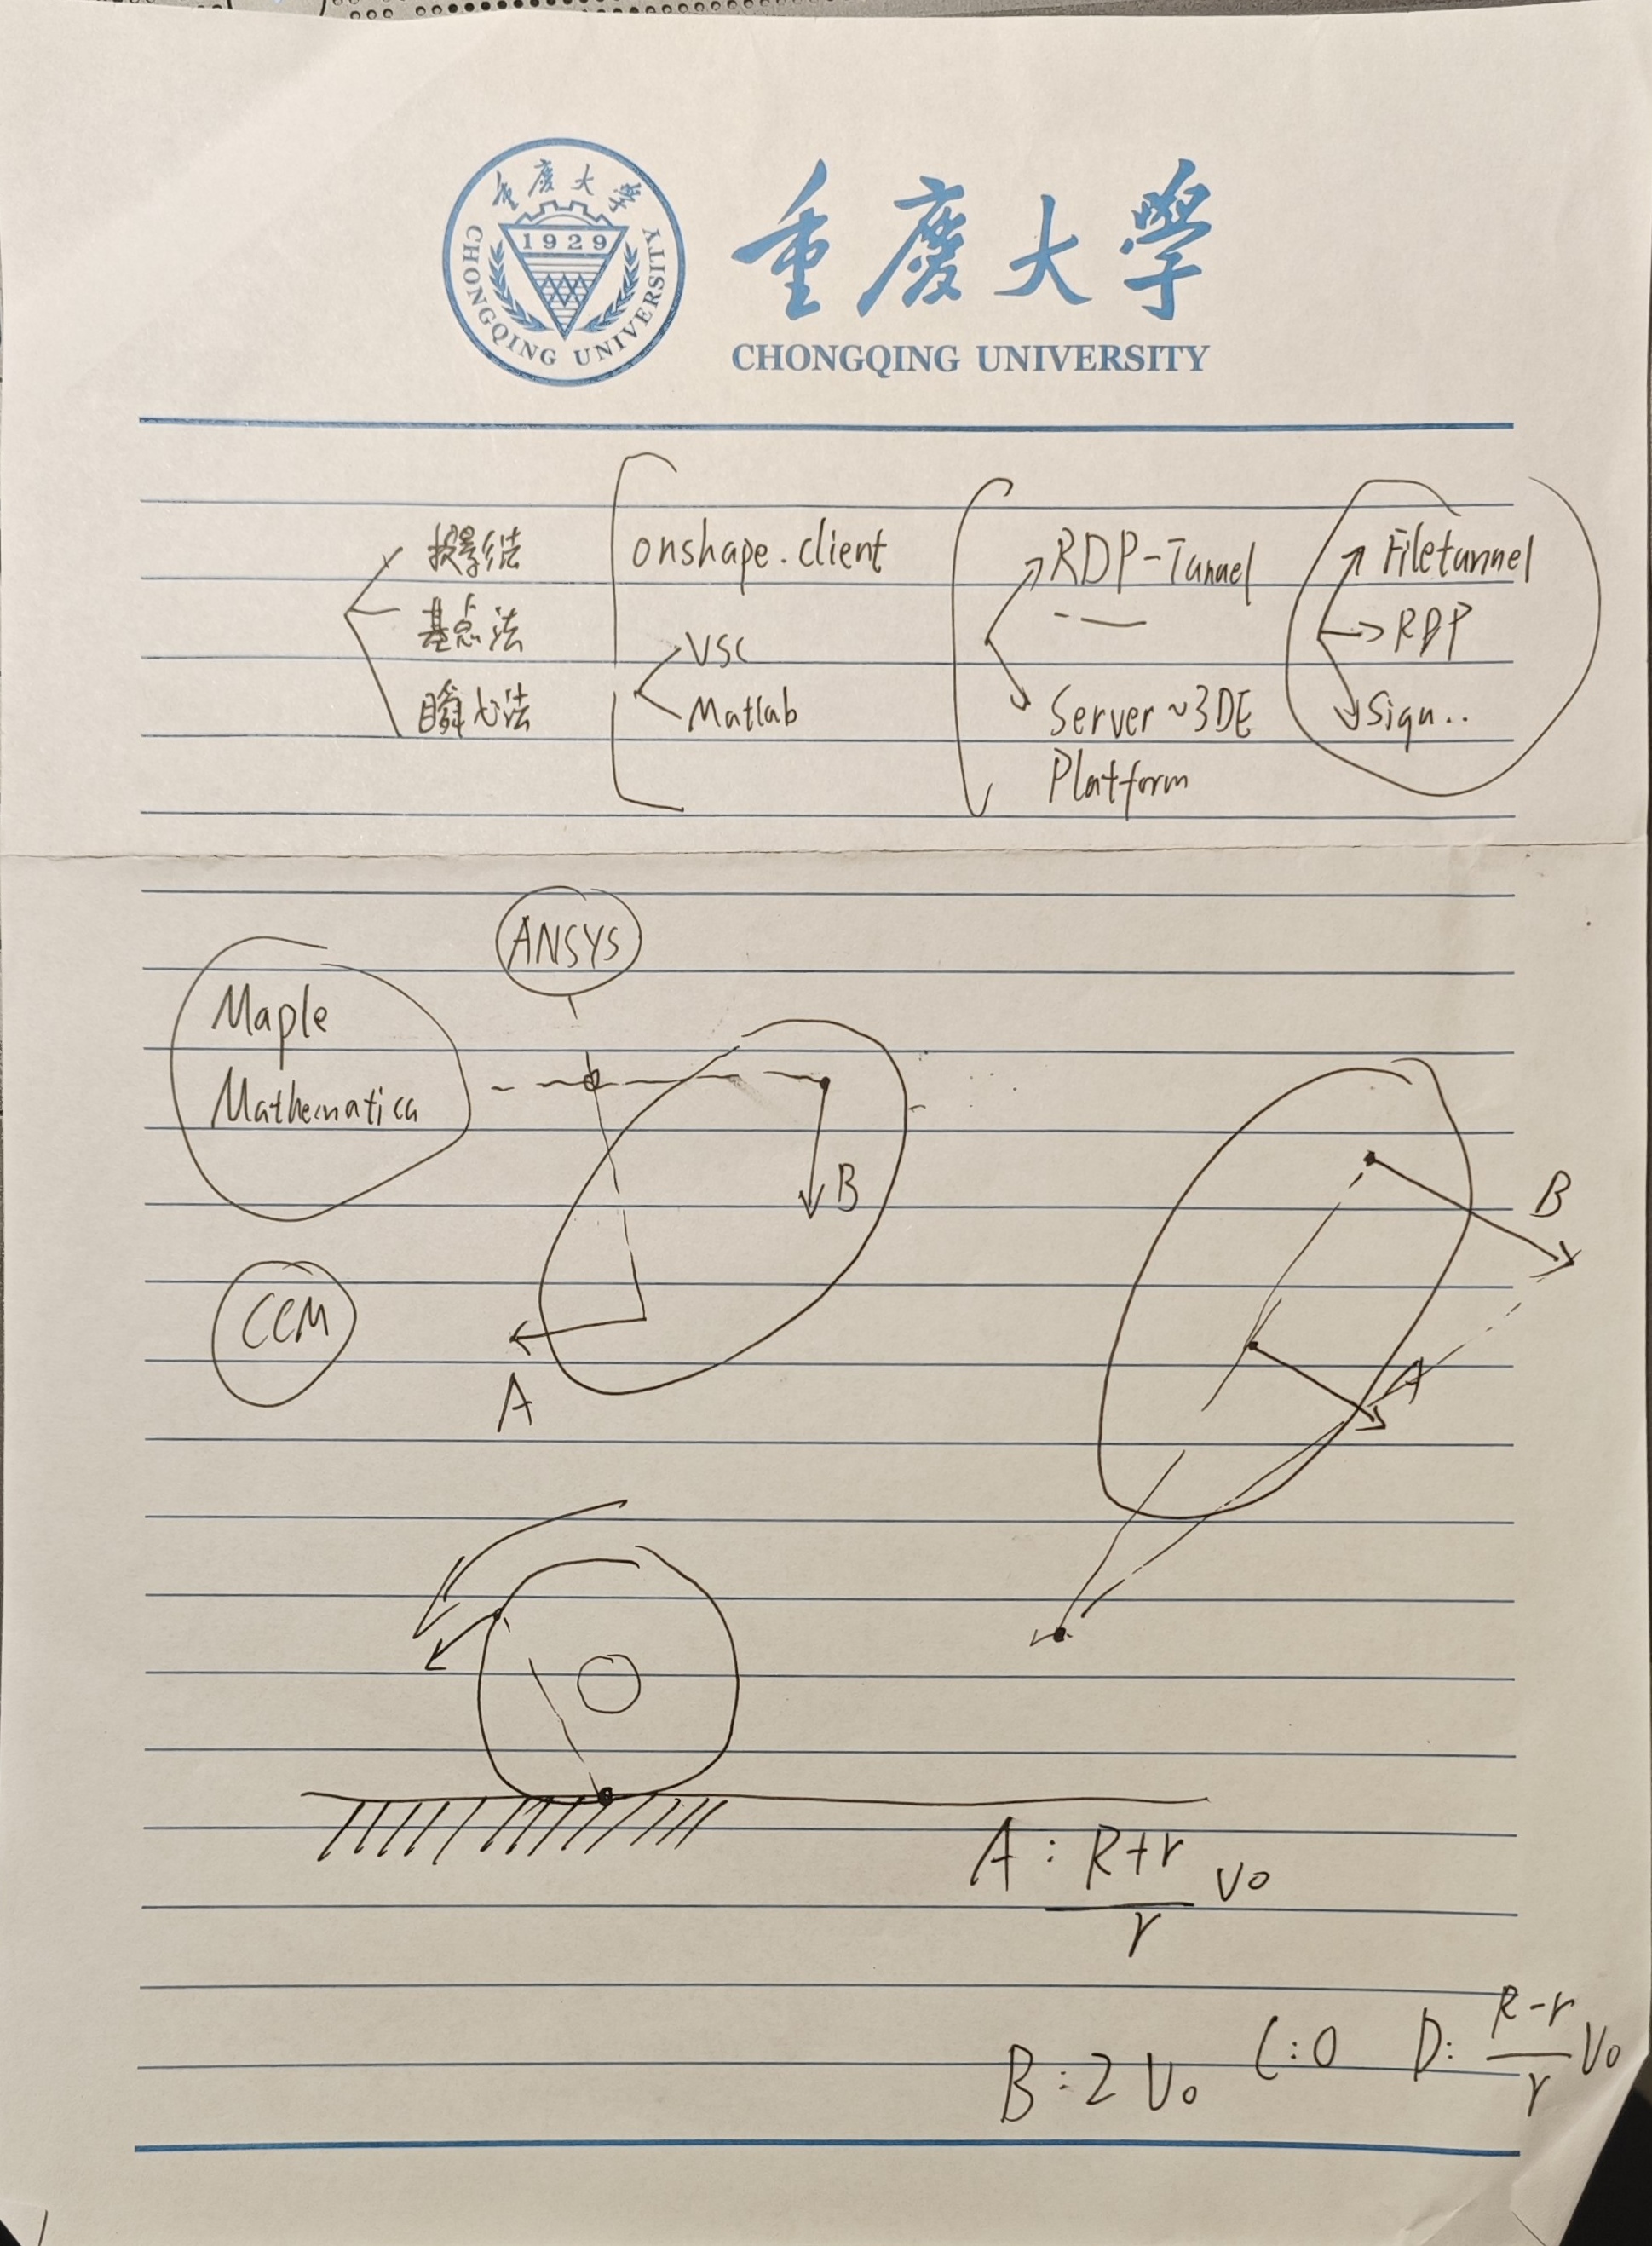 重慶大學
1929
CHONGQING UNIVERSITY
重慶大學
CHONGQING UNIVERSITY
投影法
基点法
瞬心法
onshape.client
VSC
Matlab
RDP-Tunnel
Server~3DE
Platform
Filetunnel
RDP
Sign..
ANSYS
Maple
Mathematica
CCM
B
A
B
A
A: R+r/r v₀
B: 2v₀ C:0 D: R-r/r v₀